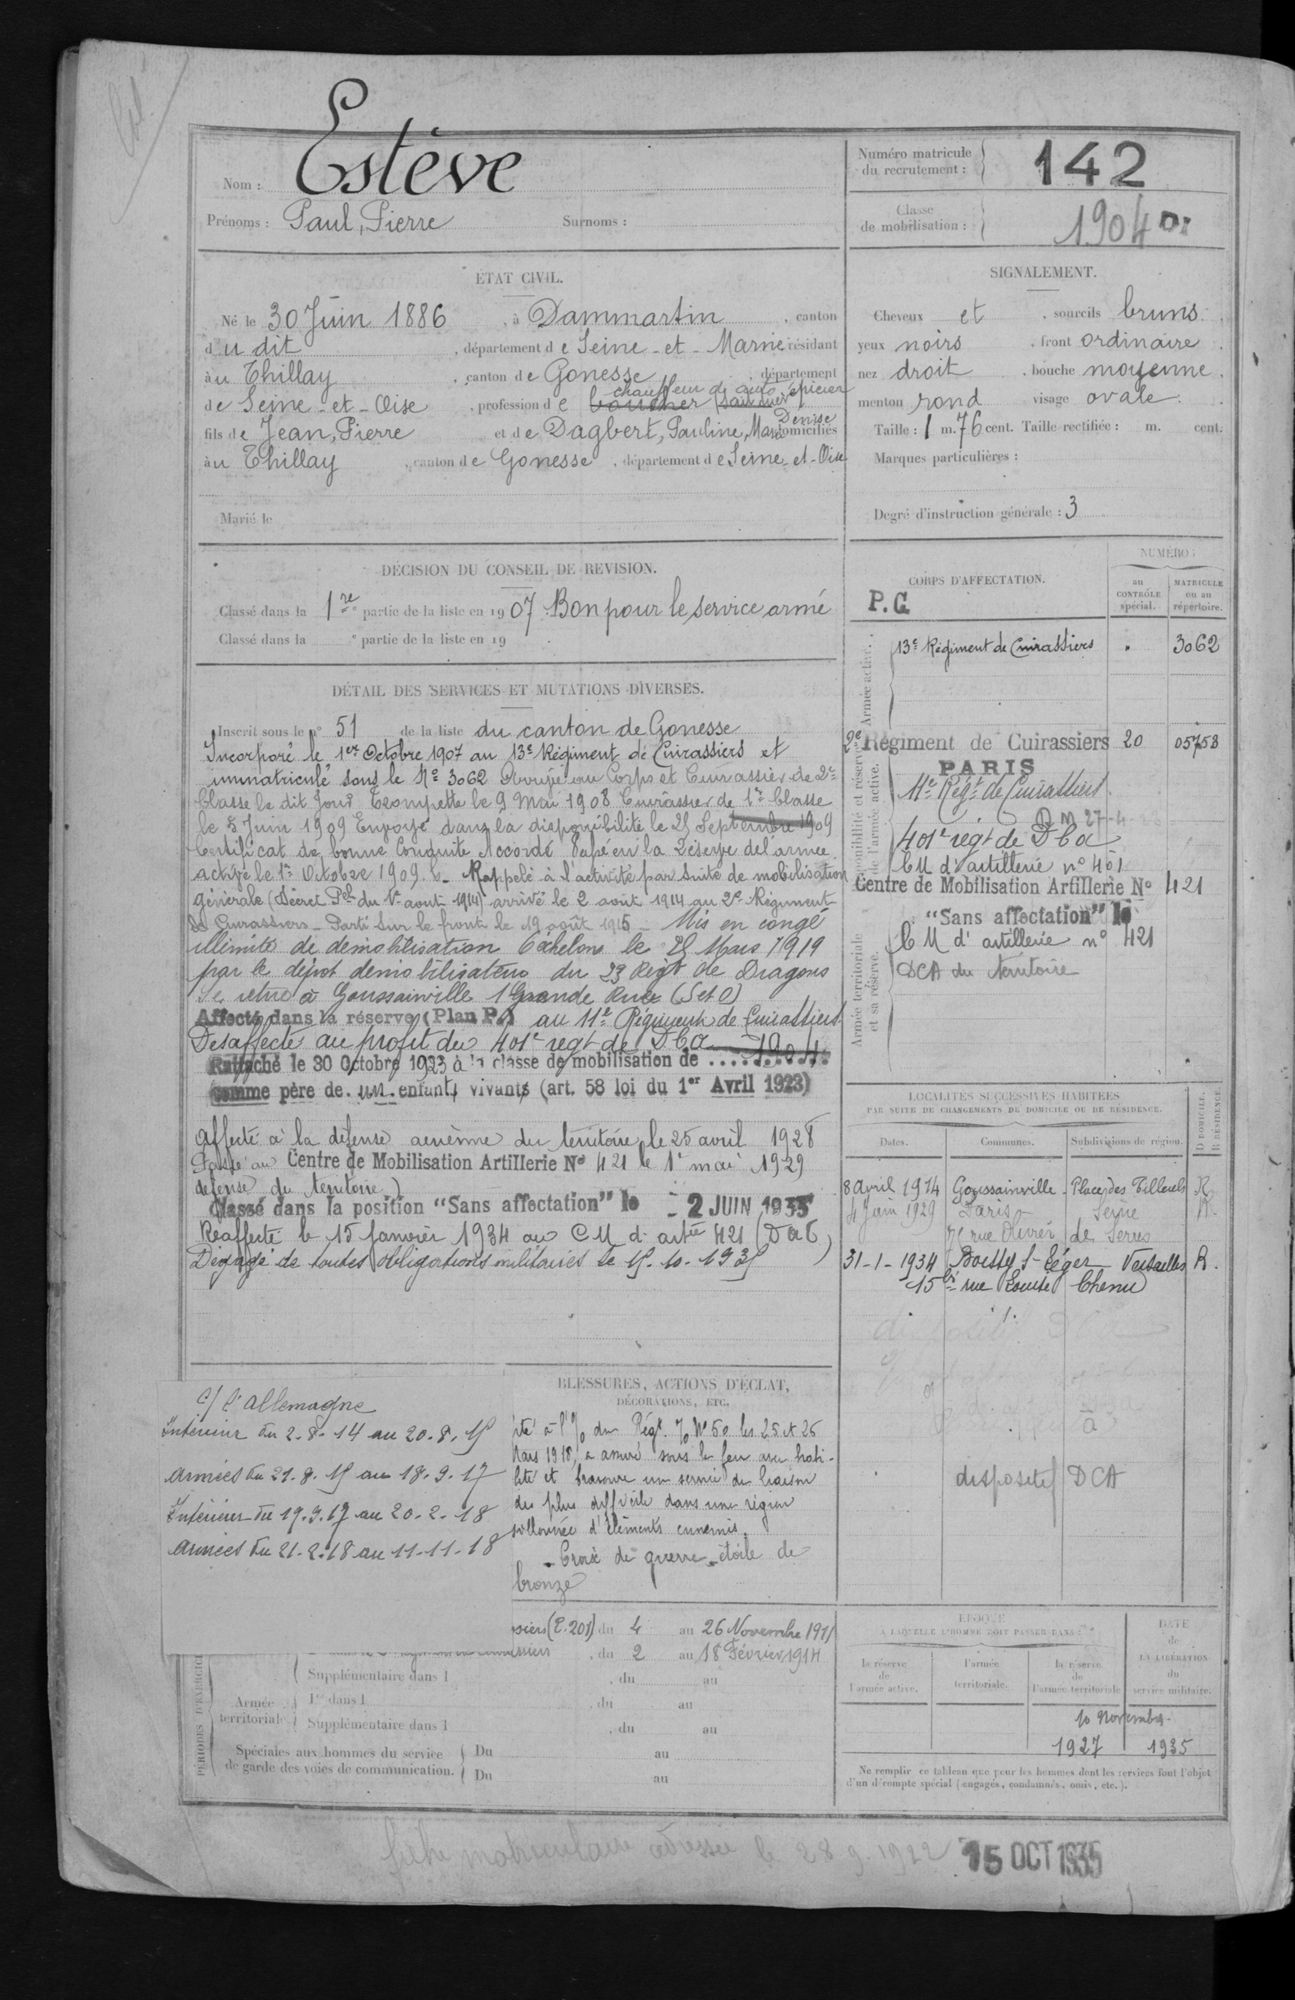 Nom : Estève
Prénoms : Paul, Pierre Surnoms :
Numéro matricule du recrutement : 142
Classe de mobilisation : 1904
ETAT CIVIL.
Né le 30 Juin 1886, à Dammartin, canton
du dit, département de Seine-et-Marne résidant
au Thillay, canton de Gonesse, département
chauffeur de auto épicier
de Seine-et-Oise, profession de boucher
fils de Jean, Pierre et de Dagbert, Pauline, Marie Denise domiciliés
au Thillay, canton de Gonesse, département de Seine-et-Oise
Marié le
SIGNALEMENT.
Cheveux et, sourcils bruns.
yeux noirs, front ordinaire,
nez droit, bouche moyenne,
menton rond visage ovale.
Taille : 1 m. 76 cent. Taille rectifiée : m. cent.
Marques particulières :
Degré d'instruction générale : 3
DÉCISION DU CONSEIL DE REVISION.
Classé dans la 1re partie de la liste en 1907 Bon pour le service armé
Classé dans la e partie de la liste en 19 .
DÉTAIL DES SERVICES ET MUTATIONS DIVERSES.
Inscrit sous le n° 51 de la liste du canton de Gonesse
Incorporé le 1er Octobre 1907 au 13e Régiment de Cuirassiers et
immatriculé sous le No 3062 Arrivé au Corps et Cuirassier de 2e
Classe le dit Jour Trompette le 9 Mai 1908 Cuirassier de 1re Classe
le 5 Juin 1909 Envoyé dans la disponibilité le 25 Septembre 1909
Certificat de bonne Conduite Accordé Passé en la Réserve de l'armée
active le 1er Octobre 1909. Rappelé à l'activité par suite de mobilisation
générale (Décret Pel du 1er aout 1914) arrivé le 2 août 1914 au 2e Régiment
de Cuirassiers Parti sur le front le 19 août 1915 Mis en congé
illimité de démobilisation échelon le 25 Mars 1919
par le dépot démobilisateur du 23 Régt de Dragons
Se retire à Goussainville 1 Grande Rue (S et O)
Affecté dans la réserve (Plan P.) au 11e Régiment de Cuirassiers
Désaffecté au profit du 401e régt de DCA
Rattaché le 30 Octobre 1923 à la classe de mobilisation de 1904.
comme père de un enfants vivants (art. 58 loi du 1er Avril 1923)
Affecté à la défense aérienne du territoire le 25 avril 1928
Passé au Centre de Mobilisation Artillerie No 421 le 1er mai 1929
défense du territoire)
Classé dans la position "Sans affectation" le - 2 JUIN 1933
Réaffecté le 15 Janvier 1934 au CM d'artie 421 (DAT)
Dégagé de toutes obligations militaires le 15-10-1935
CORPS D'AFFECTATION.
NUMÉRO :
au CONTRÔLE spécial.
MATRICULE ou au répertoire.
P.G
Armée active.
13e Régiment de Cuirassiers 3062
Disponibilité et réserve de l'armée active.
2e Régiment de Cuirassiers 20 05758
PARIS
11e Régt de Cuirassiers
401e régt de DCA
CM d'artillerie no 401
Centre de Mobilisation Artillerie No 421
"Sans affectation" le
Armée territoriale et sa réserve.
CM d'artillerie no 421
DCA du territoire
LOCALITÉS SUCCESSIVES HABITÉES
PAR SUITE DE CHANGEMENTS DE DOMICILE OU DE RÉSIDENCE.
Dates. Communes. Subdivisions de région. D DOMICILE. R RÉSIDENCE
8 avril 1914 Goussainville Place des Tilleuls R
4 juin 1929 Paris Seine R.
rue Olivier de Serres
31-1-1934 Boissy St Léger Versailles R.
15 bis rue Louise Chenu
à
dispositif DCA
C/ l'Allemagne
Intérieur du 2-8-14 au 20.8.15
Armées du 21.8.15 au 18.9.17
Intérieur du 19.9.17 au 20-2-18
Armées du 21-2-18 au 11-11-18
BLESSURES, ACTIONS D'ÉCLAT, DÉCORATIONS, ETC.
Cité à l'O/ du Régt O/ No 50 les 25 et 26
Mars 1918, a assuré sous le feu avec habi-
leté et bravoure un service de liaison
des plus difficile dans une région
sillonnée d'éléments ennemis.
Croix de guerre étoile de
bronze
(P. 201) du 4 au 26 Novembre 1911
du 2 au 18 Février 1914
PÉRIODES D'EXERCICE
Supplémentaire dans l , du au
Armée territoriale
1re dans l , du au
Supplémentaire dans l , du au
Spéciales aux hommes du service de garde des voies de communication.
Du au
Du au
ÉPOQUE
A LAQUELLE L'HOMME DOIT PASSER DANS :
la réserve de l'armée active.
l'armée territoriale.
la réserve de l'armée territoriale
DATE de LA LIBÉRATION du service militaire.
10 Novembre
1927 1935
Ne remplir ce tableau que pour les hommes dont les services font l'objet
d'un décompte spécial (engagés, condamnés, omis, etc.).
fiche matriculaire adressée le 28 9. 1922
15 OCT 1935